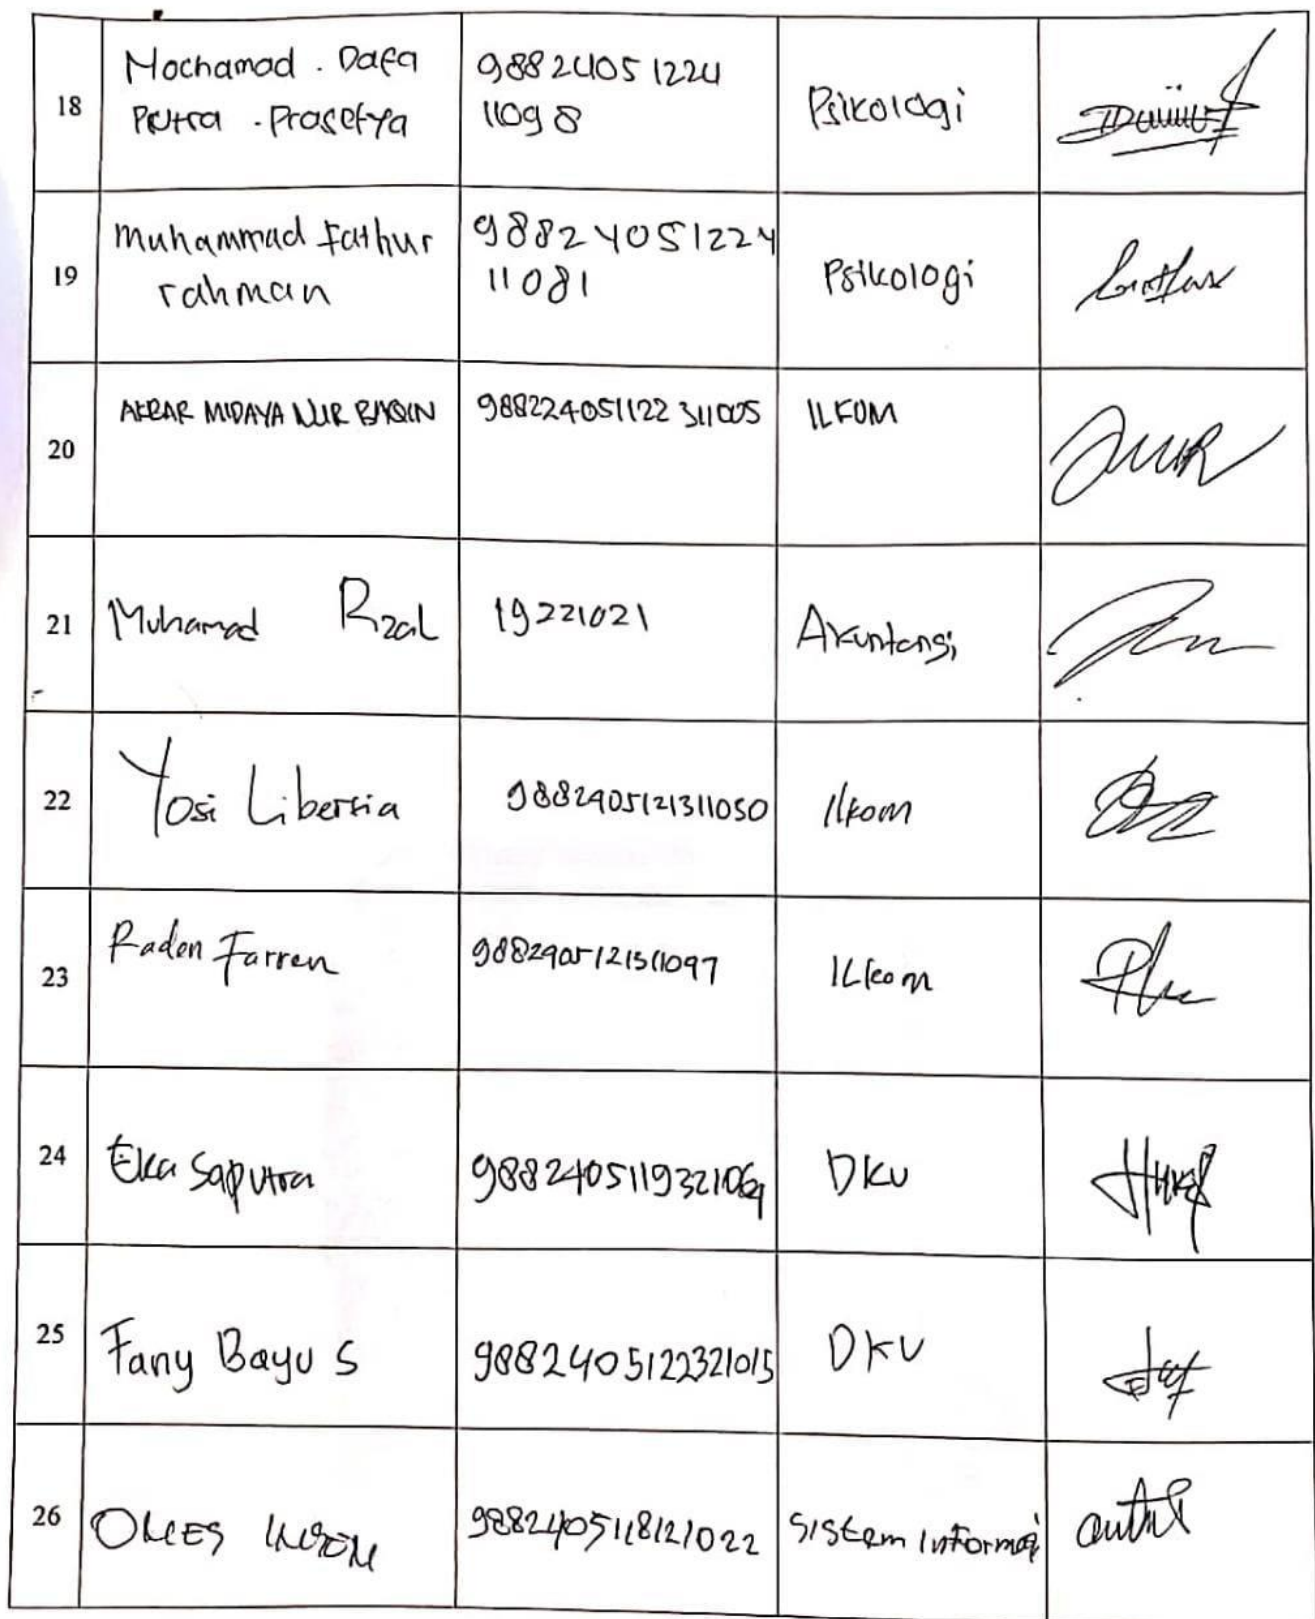 18
Mochamad . Dafa
Putra . Prasetya
988 24051224
11098
Psikologi
19
Muhammad fathur
rahman
98824051224
11081
Psikologi
20
AKBAR MIDAYA NUR
988224051122 311005
ILKOM
21
Muhamad Rzal
19221021
Akuntansi
22
Yosi Libersia
9882405121311050
Ilkom
23
Raden Farren
9882405121311097
ILkom
24
Eka Saputra
DKV
25
Fany Bayu S
9882405122321015
DKV
26
9882405118121022
Sistem Informasi